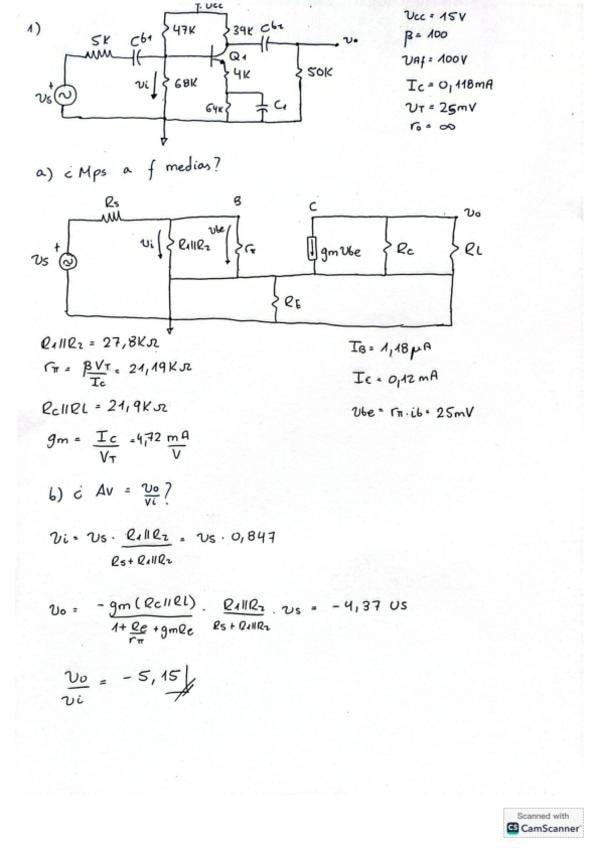 1)
+ Vcc
47K
39K
Cb2
5K
Cb1
Q1
Vo
Vi
68K
4K
50K
64K
C1
Vs
+
Vcc = 15V
β = 100
VAf = 100V
Ic = 0,118mA
VT = 25mV
ro = ∞
a) ¿ Mps a f medias?
Rs
B
C
Vo
+
Vs
Vi
R1||R2
Vbe
rπ
gmVbe
Rc
RL
RE
R1||R2 = 27,8KΩ
rπ = βVT/Ic = 21,19KΩ
Rc||RL = 21,9KΩ
gm = Ic/VT = 4,72 mA/V
IB = 1,18µA
Ic = 0,12mA
Vbe = rπ · ib = 25mV
b) ¿ Av = Vo/Vi ?
Vi = Vs · R1||R2/Rs+R1||R2 = Vs · 0,847
Vo = -gm(Rc||RL)/1+Re/rπ+gmRe · R1||R2/Rs+R1||R2 · Vs = -4,37 Vs
Vo/Vi = -5,15
Scanned with
CS CamScanner